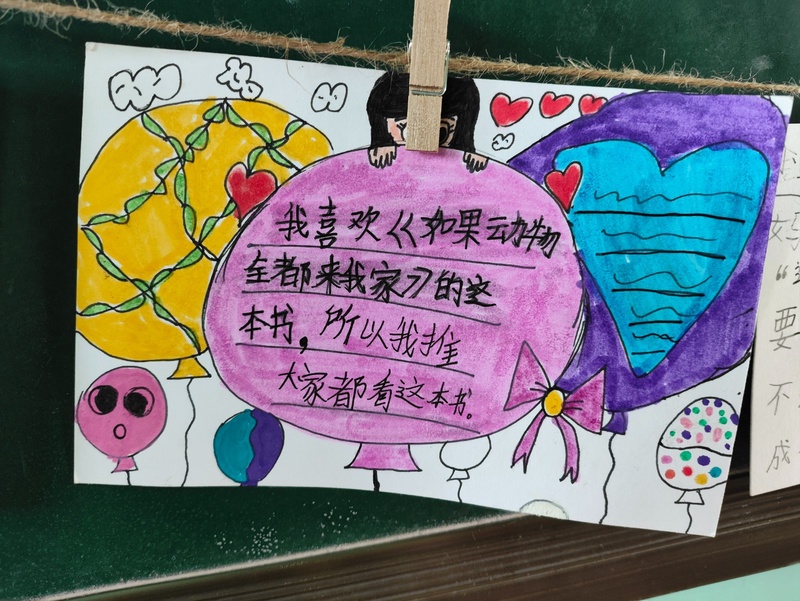 我喜欢《如果动物
全都来我家》的这
本书，所以我推
大家都看这本书。
要
不
成